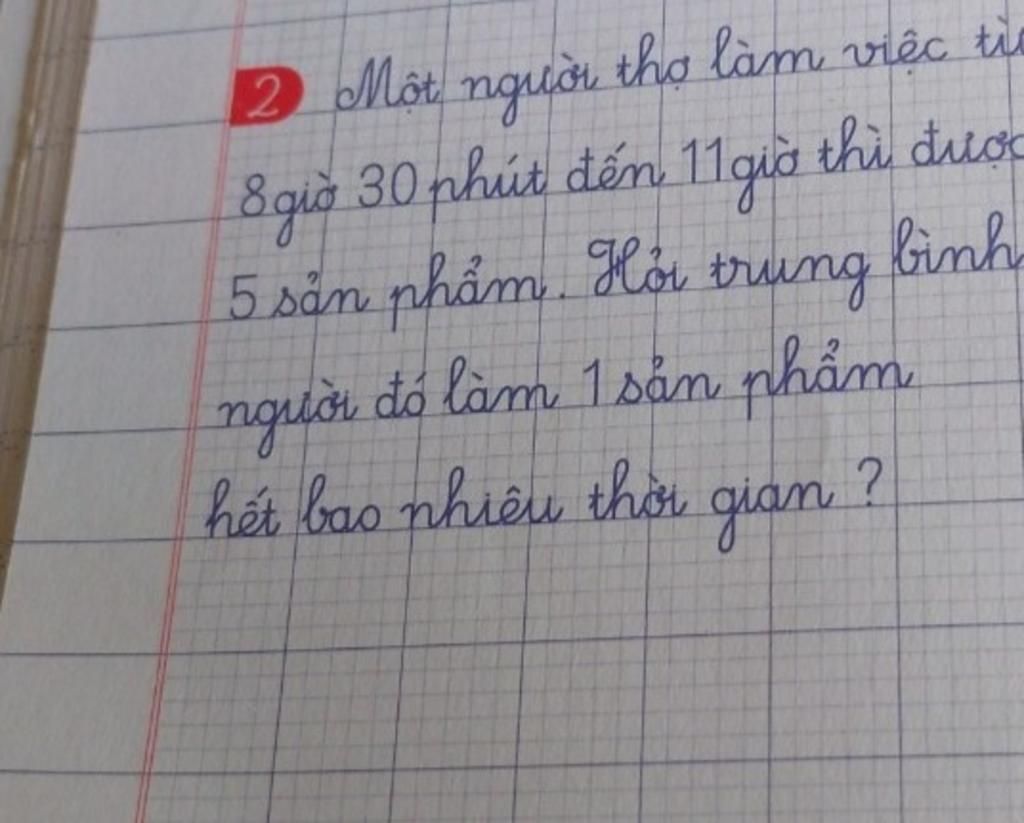 2 Một người thợ làm việc từ
8 giờ 30 phút đến 11 giờ thì được
5 sản phẩm. Hỏi trung bình
người đó làm 1 sản phẩm
hết bao nhiêu thời gian ?